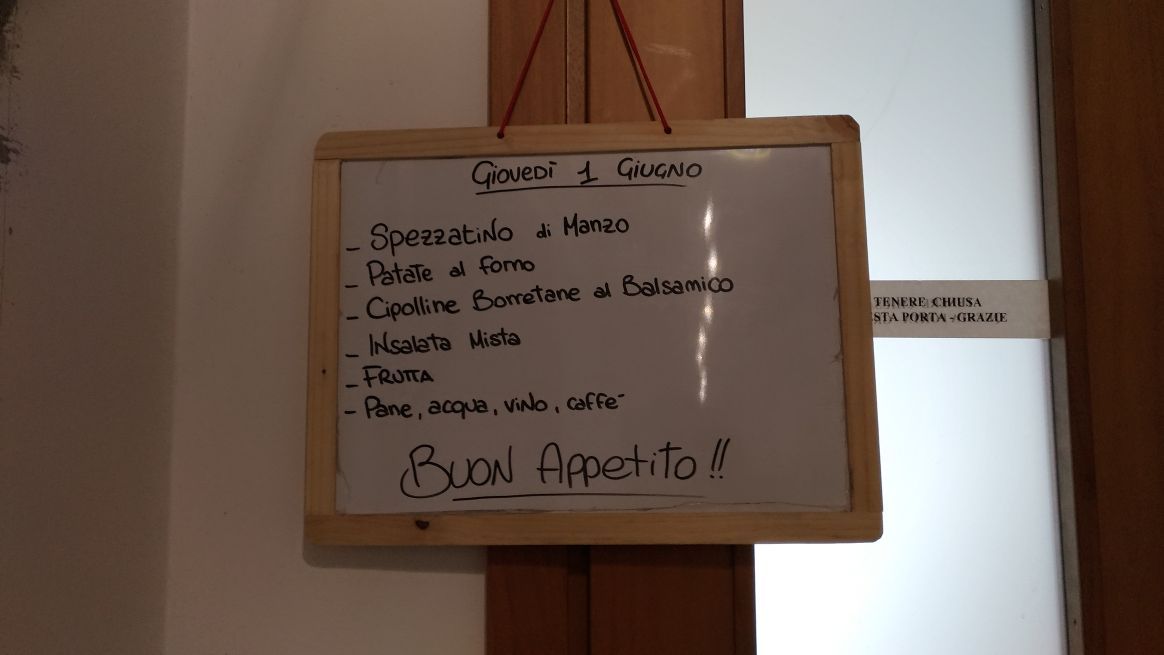 Giovedì 1 Giugno
- Spezzatino di Manzo
- Patate al forno
- Cipolline Borretane al Balsamico
- Insalata Mista
- Frutta
- Pane, acqua, vino, caffè
Buon Appetito!!
TENERE CHIUSA
STA PORTA - GRAZIE